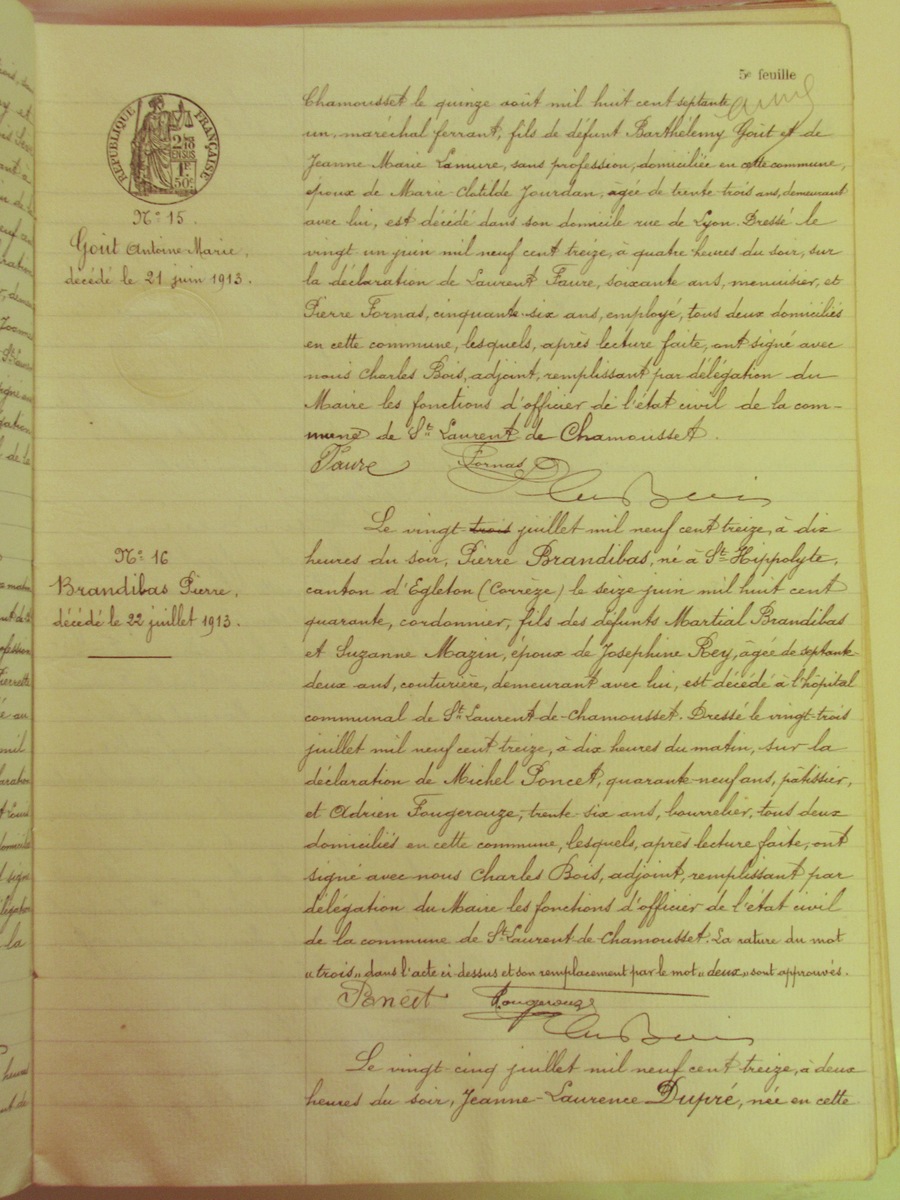 5e feuille
RÉPUBLIQUE FRANÇAISE
2 /10
EN SUS
1F
50c
N° 15.
Goût Antoine Marie,
décédé le 21 juin 1913.
Chamousset le quinze août mil huit cent septante
un, maréchal ferrant, fils de défunt Barthélemy Goût et de
Jeanne Marie Lamure, sans profession, domiciliée en cette commune,
époux de Marie-Clotilde Jourdan, agée de trente trois ans, demeurant
avec lui, est décédé dans son domicile rue de Lyon. Dressé le
vingt un juin mil neuf cent treize, à quatre heures du soir, sur
la déclaration de Laurent Faure, soixante ans, menuisier, et
Pierre Fornas, cinquante-six ans, employé, tous deux domiciliés
en cette commune, lesquels, après lecture faite, ont signé avec
nous Charles Bois, adjoint, remplissant par délégation du
Maire les fonctions d'officier de l'état civil de la com-
mune de St Laurent de Chamousset.
Faure Fornas
Ch Bois
N° 16
Brandibas Pierre,
décédé le 22 juillet 1913.
Le vingt-trois juillet mil neuf cent treize, à dix
heures du soir, Pierre Brandibas, né à St-Hippolyte,
canton d'Egleton (Corrèze) le seize juin mil huit cent
quarante, cordonnier, fils des défunts Martial Brandibas
et Suzanne Mazin, époux de Joséphine Rey, âgée de septante-
deux ans, couturière, demeurant avec lui, est décédé à l'hôpital
communal de St Laurent-de-Chamousset. Dressé le vingt-trois
juillet mil neuf cent treize, à dix heures du matin, sur la
déclaration de Michel Poncet, quarante-neuf ans, pâtissier,
et Adrien Fougerouze, trente-six ans, bourrelier, tous deux
domiciliés en cette commune, lesquels, après lecture faite, ont
signé avec nous Charles Bois, adjoint, remplissant par
délégation du Maire les fonctions d'officier de l'état civil
de la commune de St-Laurent-de-Chamousset. La rature du mot
"trois" dans l'acte ci-dessus et son remplacement par le mot "deux" sont approuvés.
Poncet Fougerouze
Ch Bois
Le vingt-cinq juillet mil neuf cent treize, à deux
heures du soir, Jeanne-Laurence Dupré, née en cette